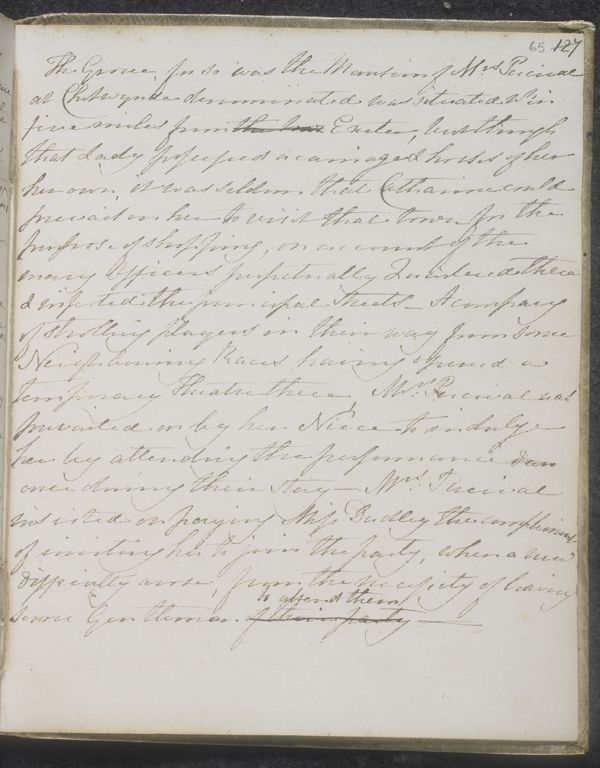 65 127
The Grove, for so was the Mansion of Mrs Percival
at Chetwynde denominated was situated wthin
five miles from the town Exeter, but though
that Lady possessed a carriage & horses of her
her own, it was seldom that Catharine could
prevail on her to visit that town for the
purpose of shopping, on account of the
many Officers perpetually Quartered there
& infested the principal Streets_ A company
of strolling players on their way from some
Neighbouring Races having opened a
temporary Theatre there, Mrs Percival was
prevailed on by her Niece to indulge
her by attending the performance
once during their stay_ Mrs Percival
insisted on paying Miss Dudley the compliment
of inviting her to join the party, when a new
difficulty arose, from the necessity of having
to attend them
some Gentleman of their party —